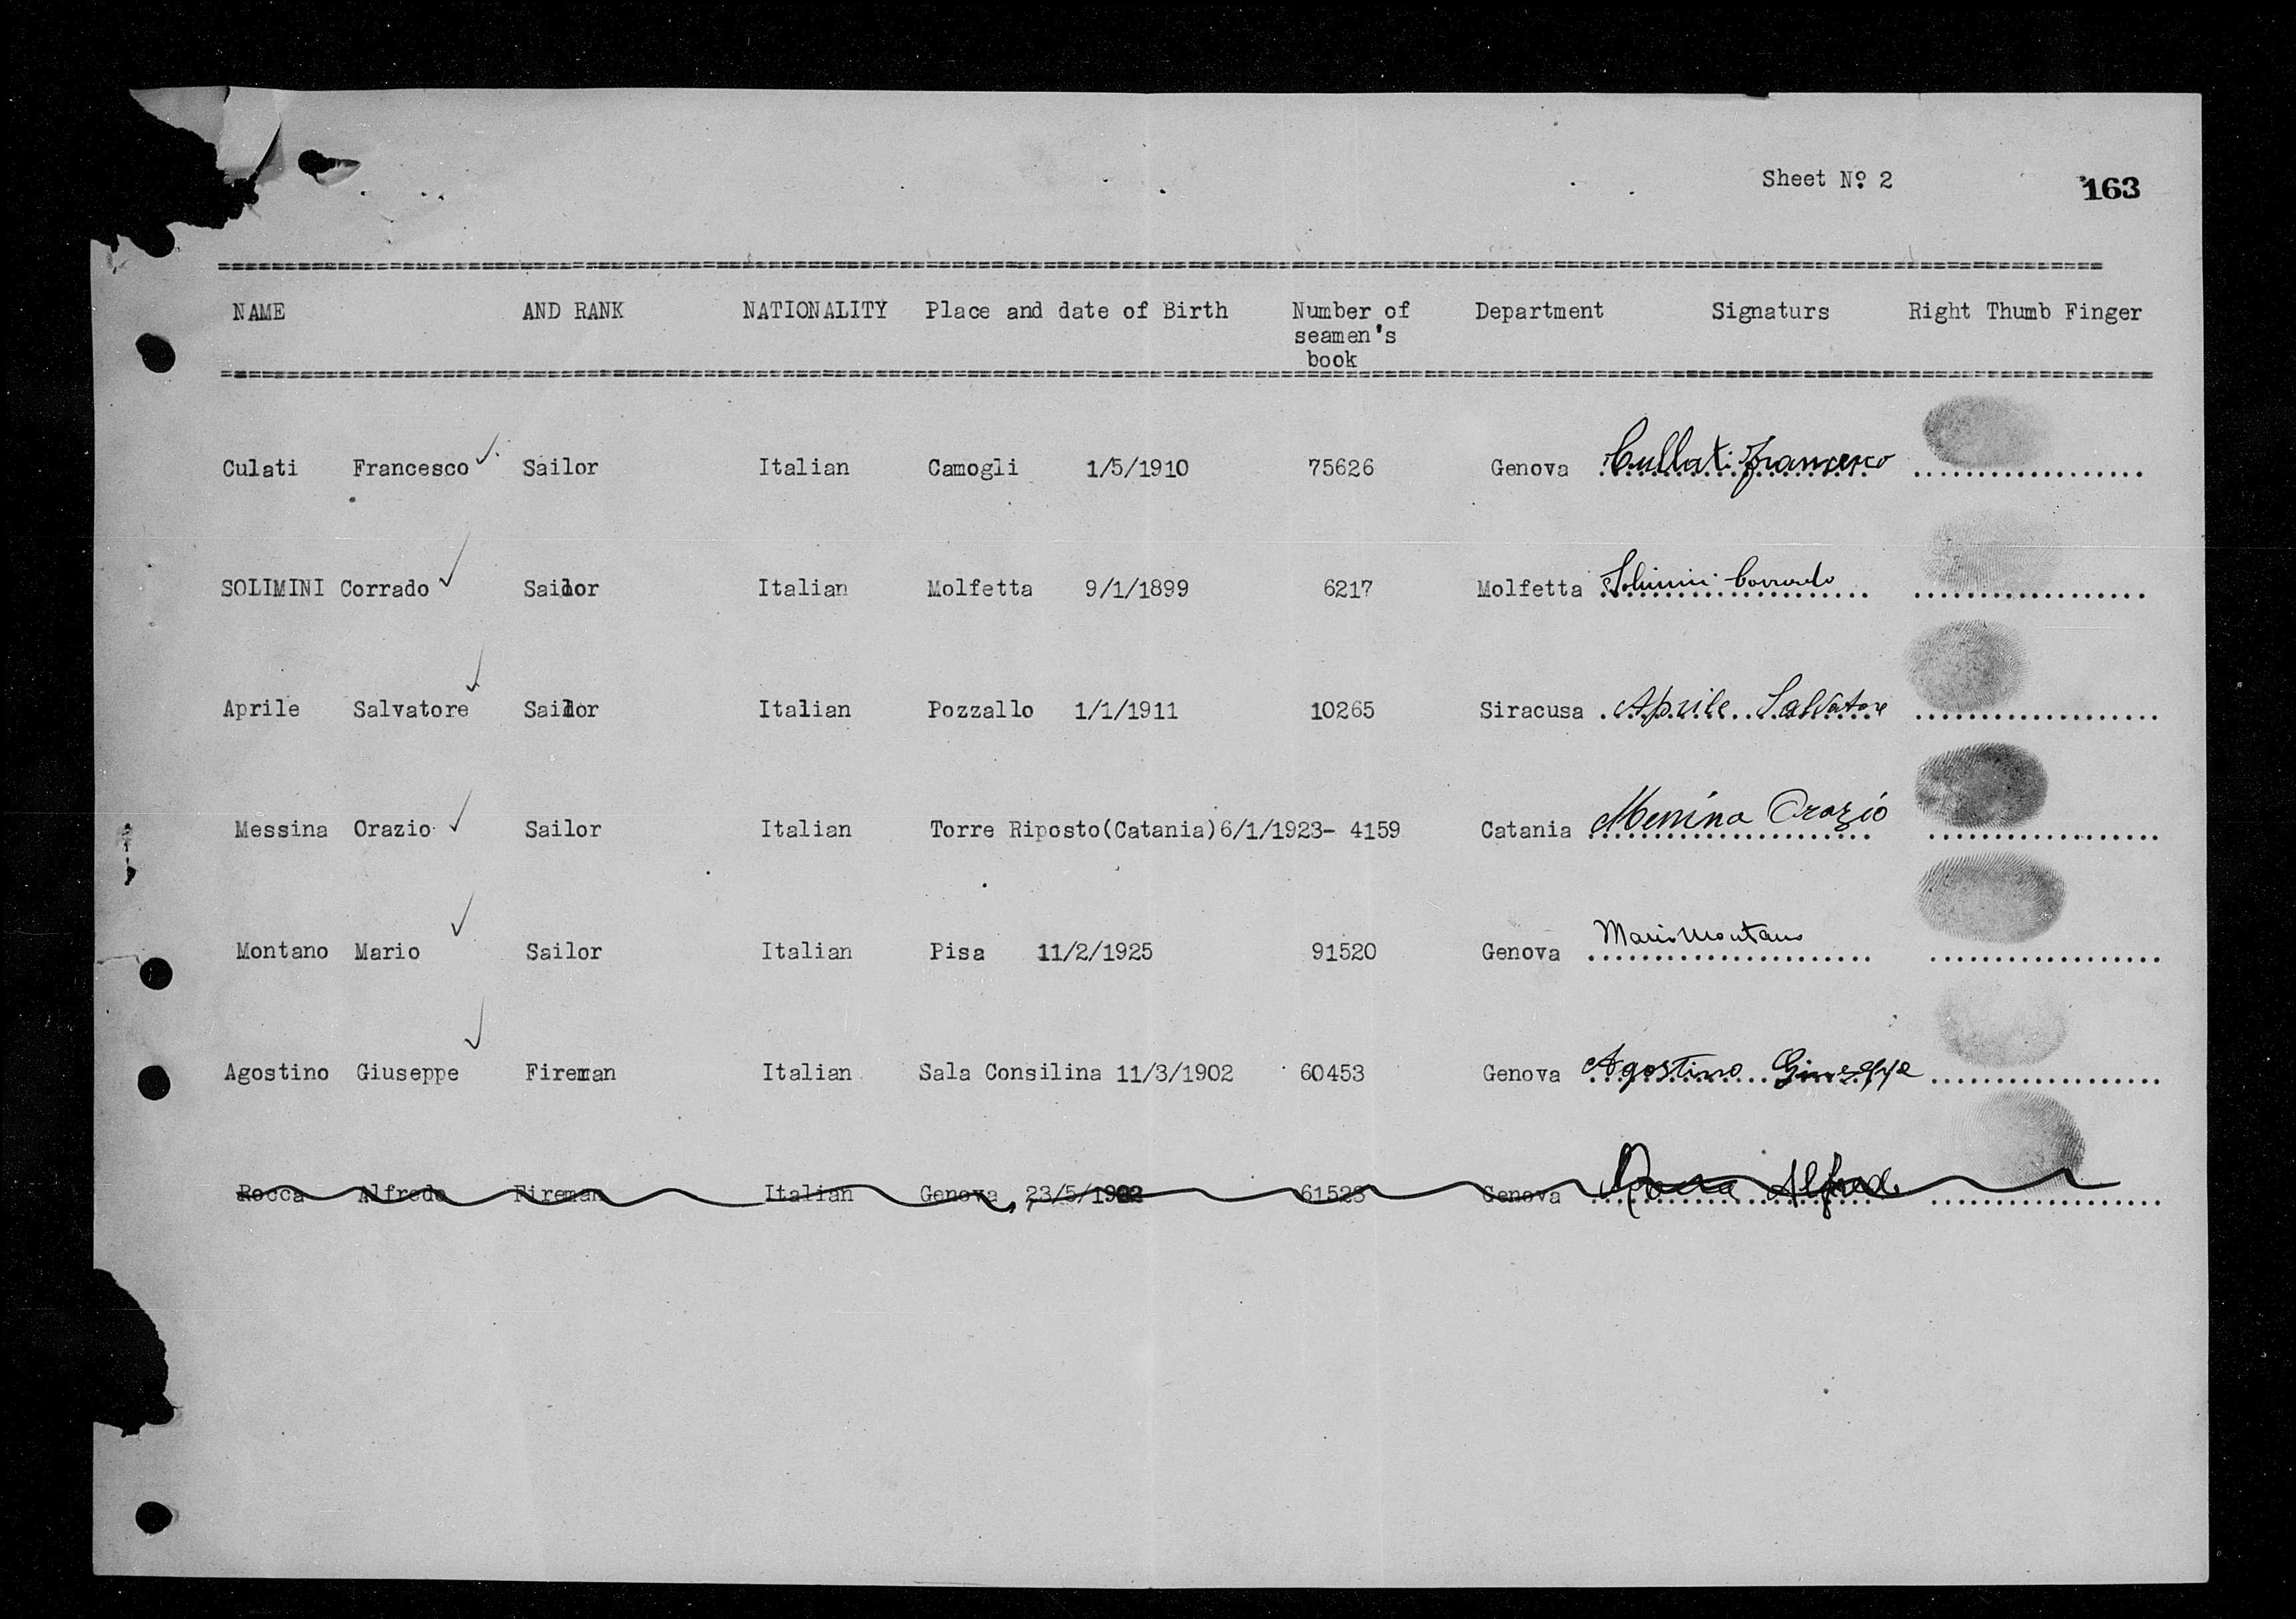 Sheet Nº 2 163
NAME AND RANK NATIONALITY Place and date of Birth Number of Department Signaturs Right Thumb Finger
seamen's
book
Culati Francesco Sailor Italian Camogli 1/5/1910 75626 Genova Cullati Francesco
SOLIMINI Corrado Sailor Italian Molfetta 9/1/1899 6217 Molfetta Solimini Corrado
Aprile Salvatore Sailor Italian Pozzallo 1/1/1911 10265 Siracusa Aprile Salvatore
Messina Orazio Sailor Italian Torre Riposto(Catania)6/1/1923- 4159 Catania Messina Orazio
Montano Mario Sailor Italian Pisa 11/2/1925 91520 Genova Mario Montano
Agostino Giuseppe Fireman Italian Sala Consilina 11/3/1902 60453 Genova Agostino Giuseppe
Rocca Alfredo Fireman Italian Genova, 23/5/1902 61523 Genova Rocca Alfredo